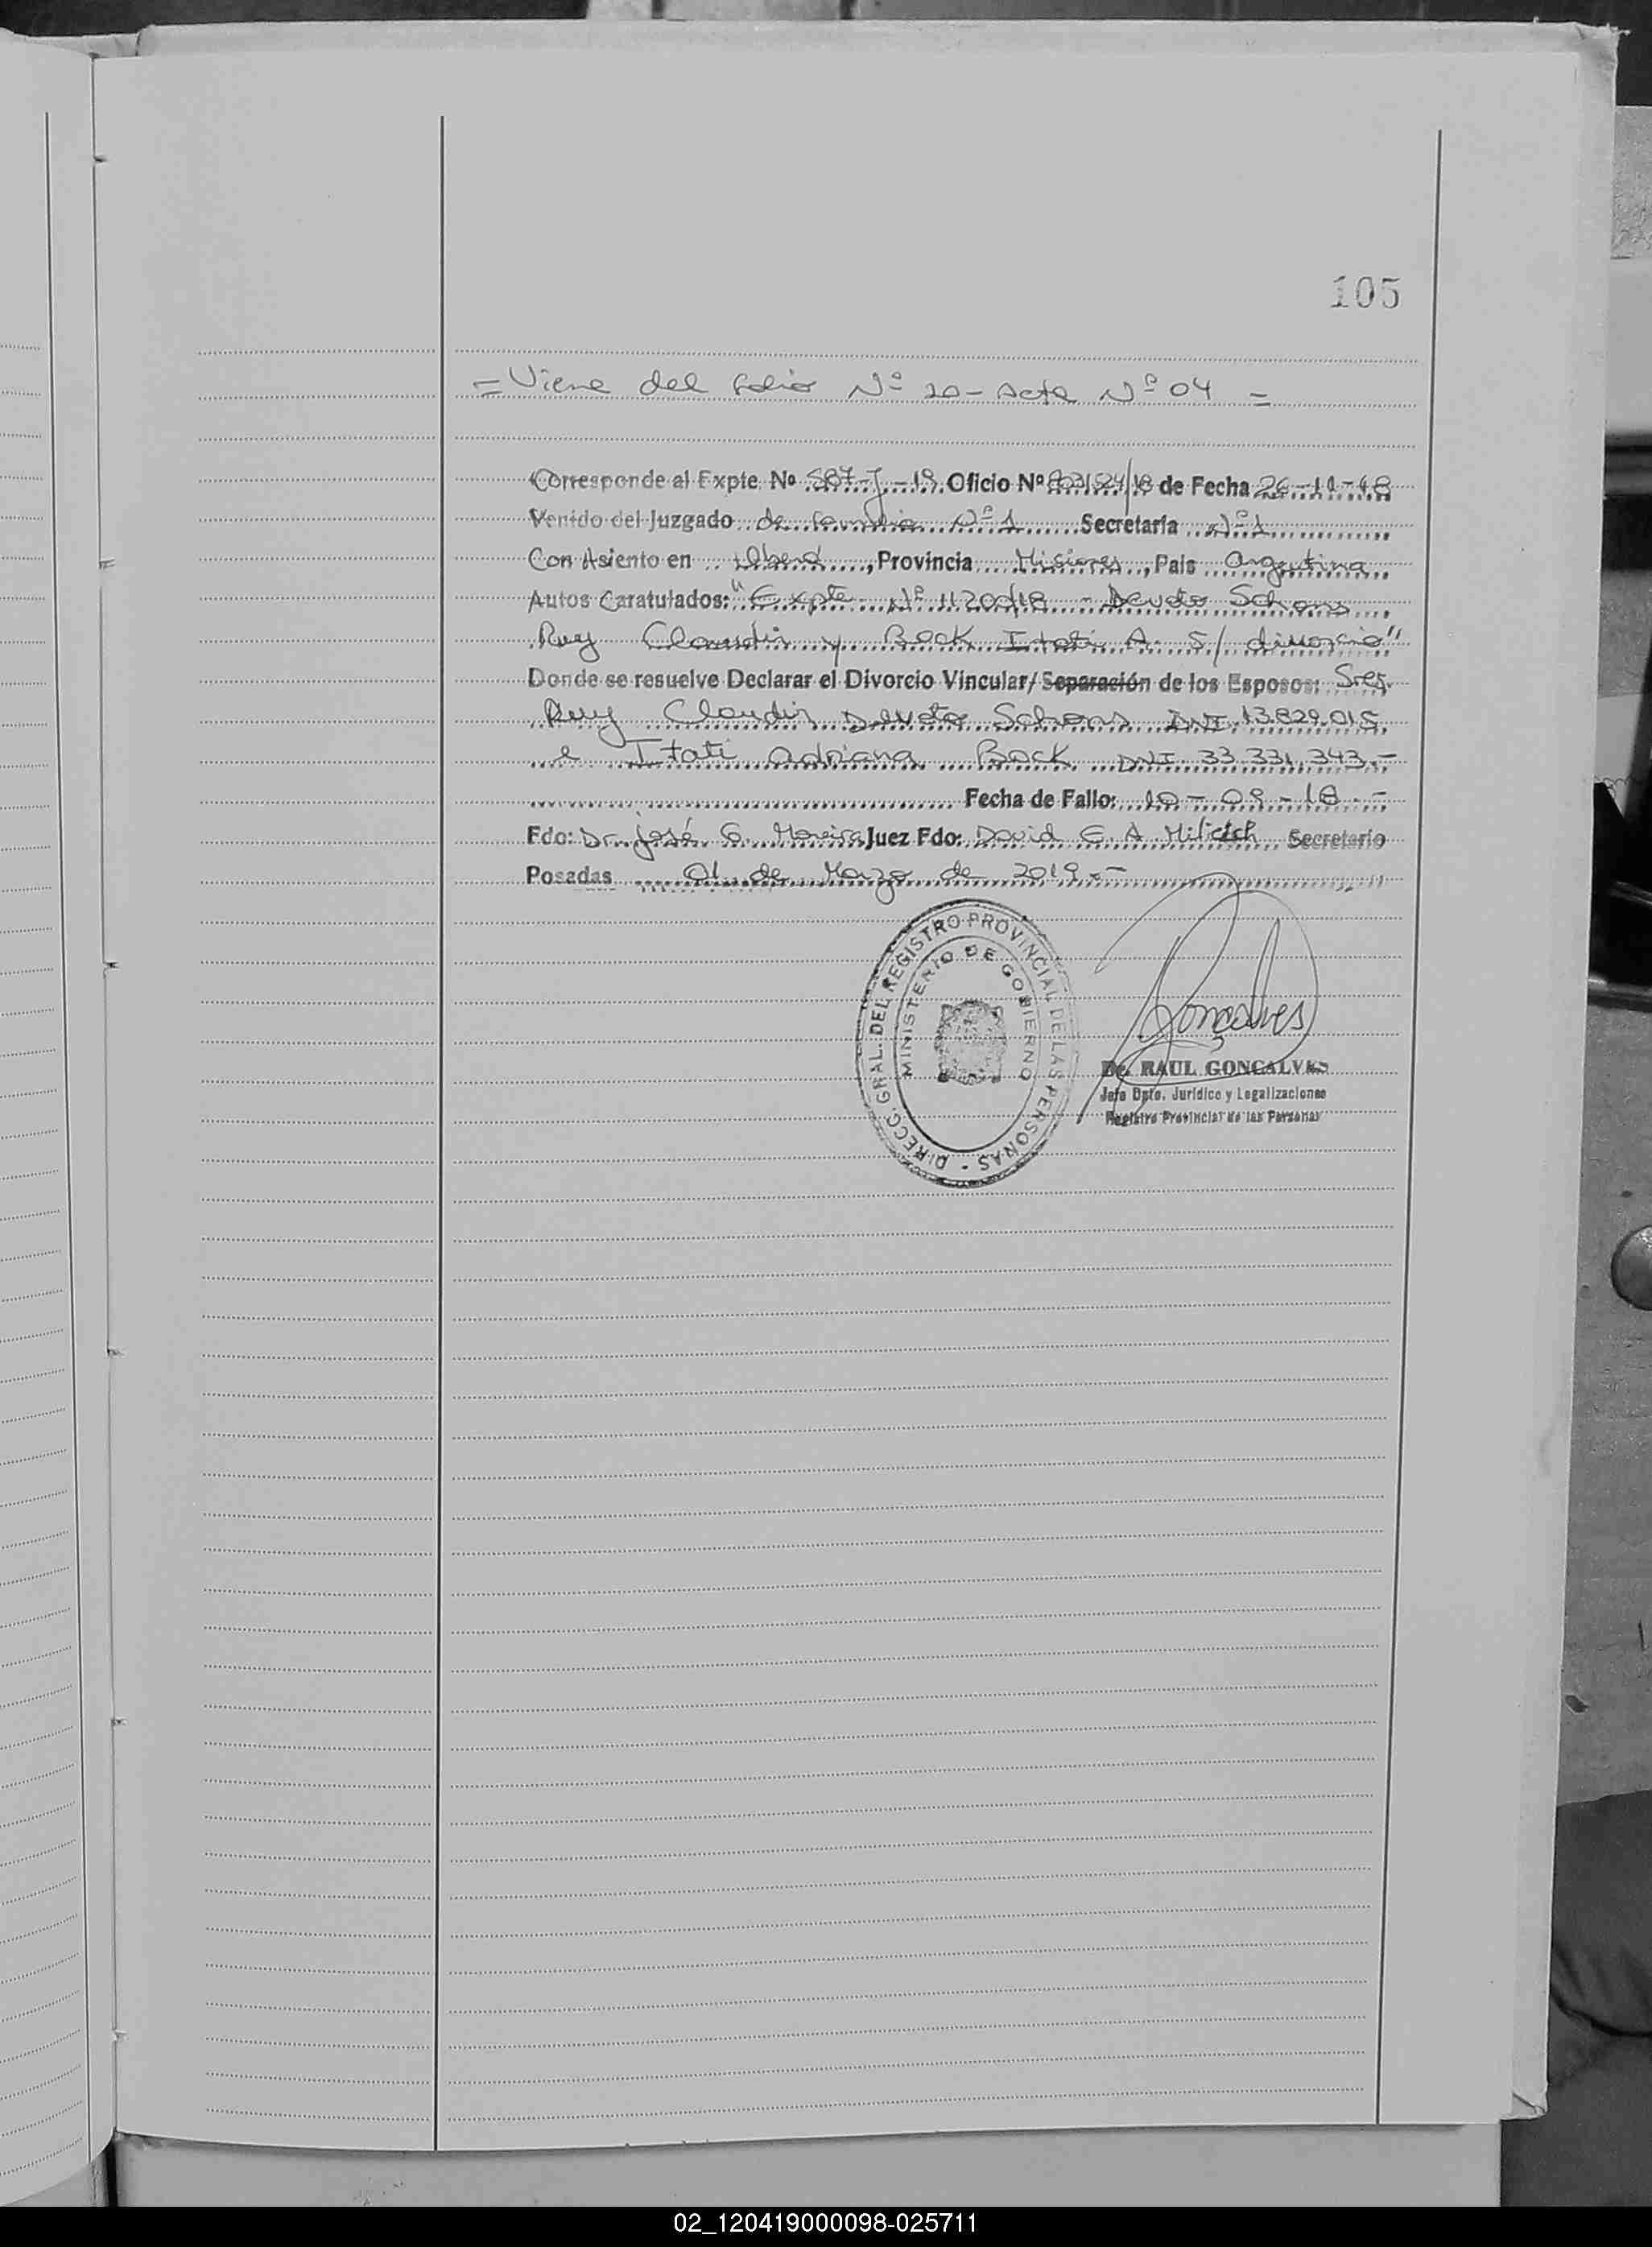 105
= Viene del folio Nº 20 - Acta Nº 04 =
Corresponde al Expte. Nº 587-J-19 Oficio Nº de Fecha 26-11-18
Venido del Juzgado de familia Nº 1 Secretaría Nº 1
Con Asiento en Oberá, Provincia Misiones, País Argentina
Autos Caratulados: "Expte. Nº 11200/18 - Devoto Schons
Ruy Claudir y Bock Itati A. S/ divorcio"
Donde se resuelve Declarar el Divorcio Vincular/Separación de los Esposos: Sres.
Ruy Claudir Devoto Schons DNI. 13.829.015
e Itati Adriana Bock DNI. 33.331.343.-
Fecha de Fallo: 10-09-18.-
Fdo: Dr. José G. Moreira Juez Fdo: David E. A. Milicich Secretario
Posadas 01 de Marzo de 2019.-
DIRECC. GRAL. DEL REGISTRO PROVINCIAL DE LAS PERSONAS -
MINISTERIO DE GOBIERNO
Gonçalves
Dr. RAUL GONCALVES
Jefe Dpto. Jurídico y Legalizaciones
Registro Provincial de las Personas
02_120419000098-025711